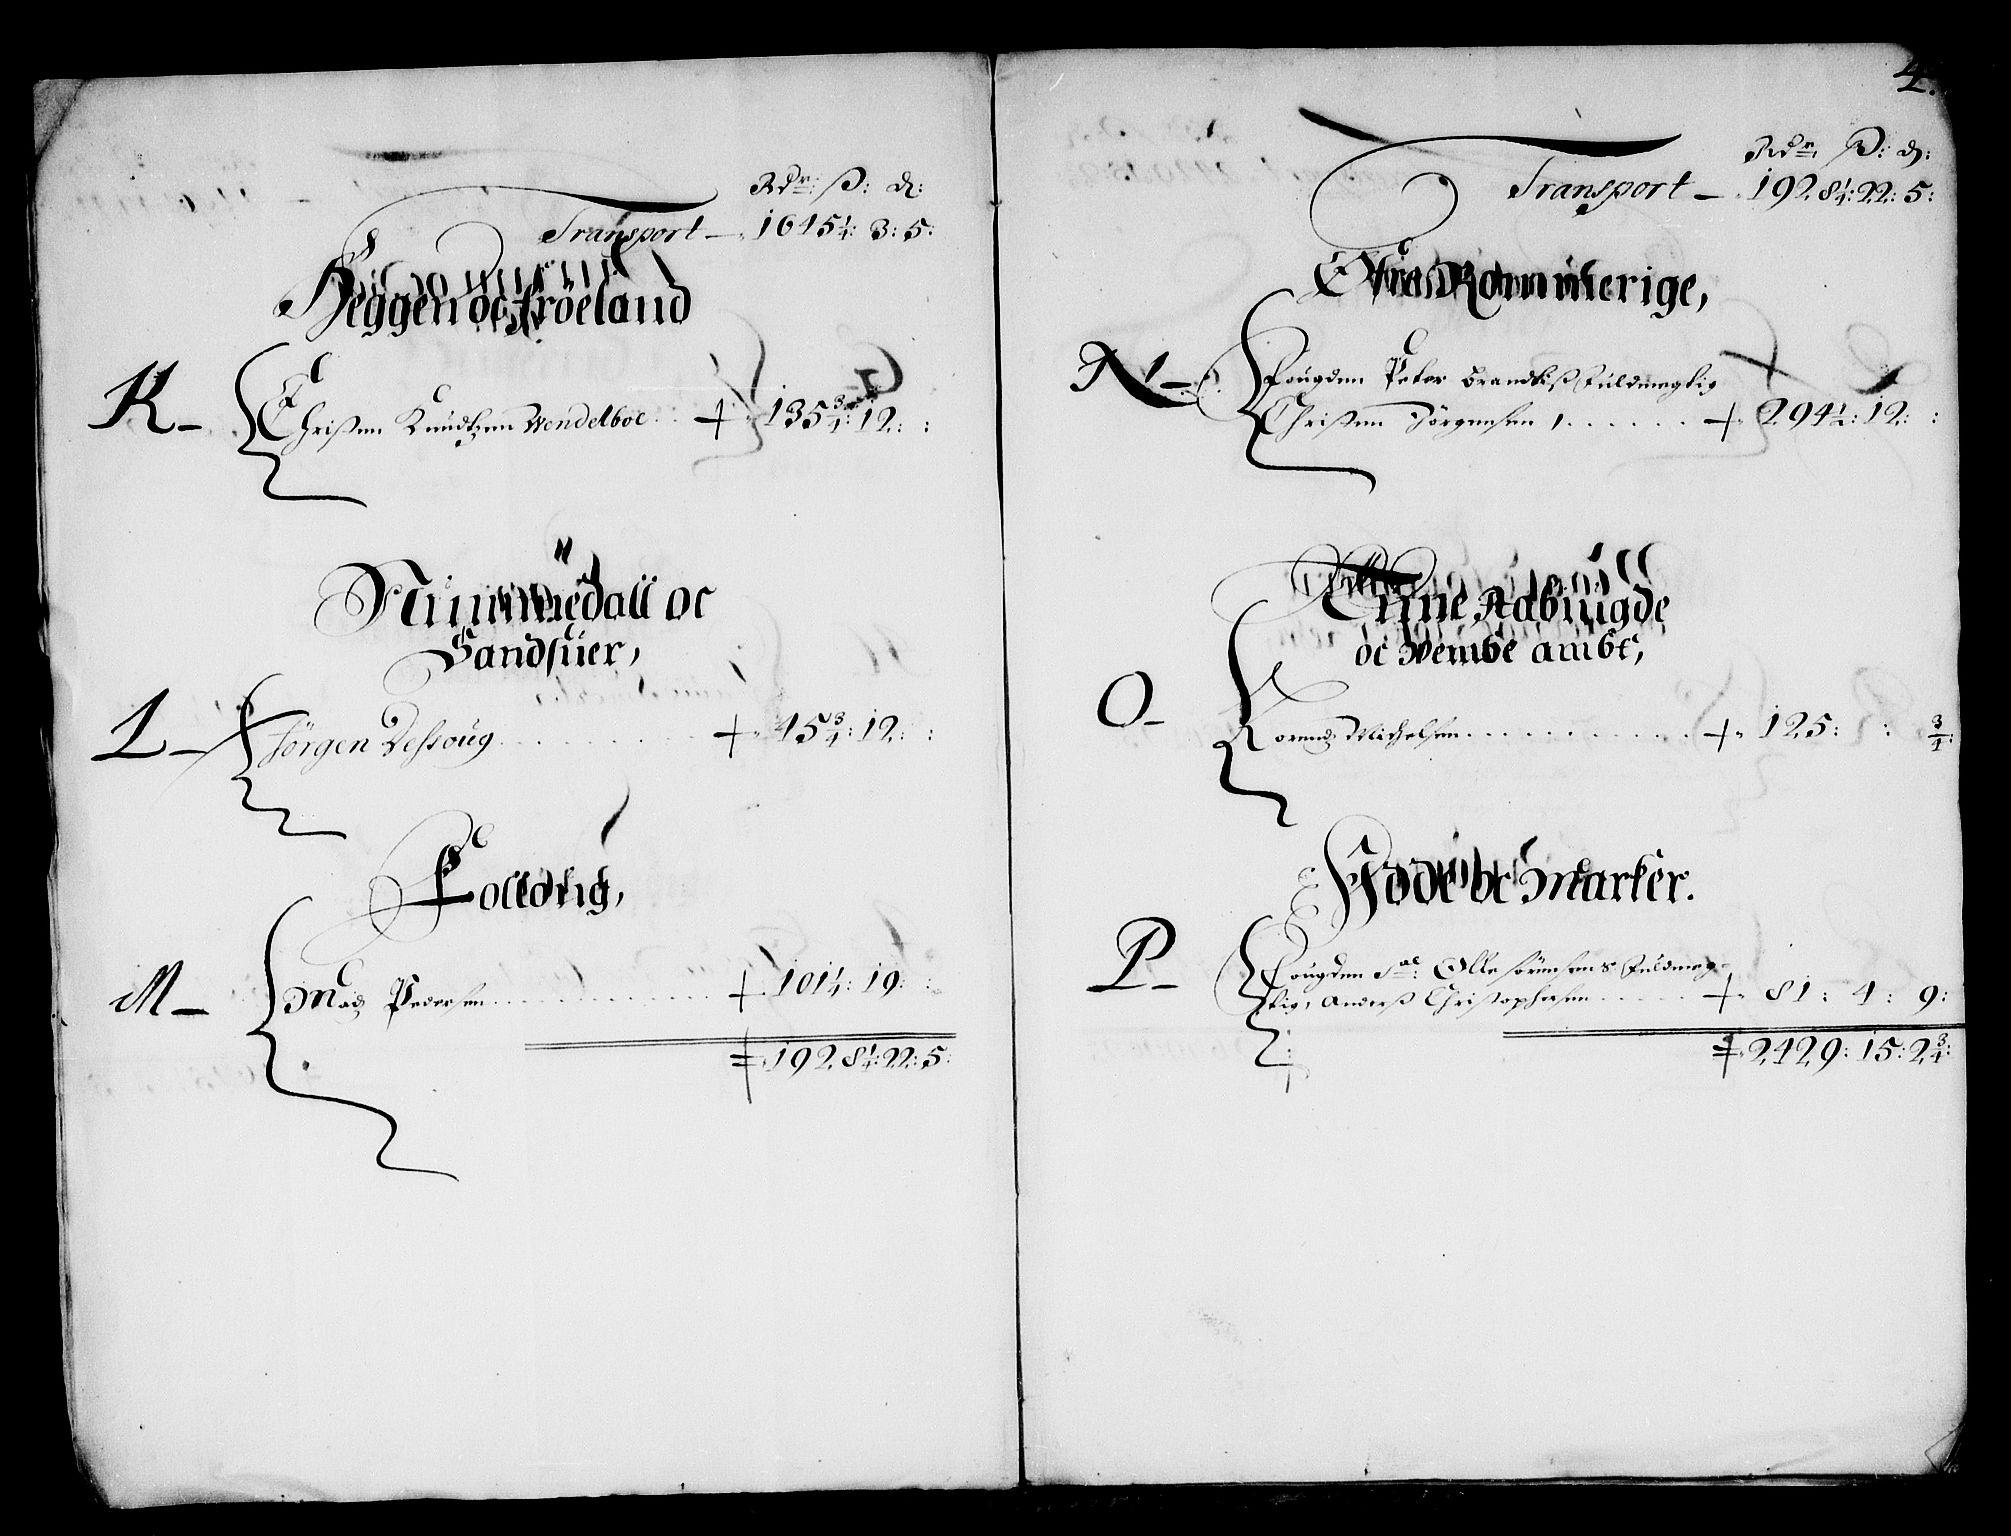 Rdr: ß: d:
Transport — 1645¼: 3: 5:
Heggen oc Fröeland
K — Christen Knudtzen Wendelboe + 135¾: 12: :
Nummedall oc
Sandsuer,
L — Jörgen Dessoug . . . . + 45¾: 12: :
Folloug,
M — Madz Pedersen . . . . + 101¼: 19: :
1928¼: 22: 5:
4.
Rdr: ß: d:
Transport — 1928¼: 22: 5:
Öfre Rommerige,
N — Fougden Peter Brandtiß Fuldmegtig
Christen Jörgensen, . . . . + 294½: 12: :
Onne Aabiugde
oc Wembe ambt,
O — Lorendz Michelsen . . . . + 125: : ¾:
Hode oc Marker.
P — Fougden Sal: Olle Sörensens Fuldmeg-
tig, Anderß Christophersen . . . . + 81: 4: 9:
2429: 15: 2¾: